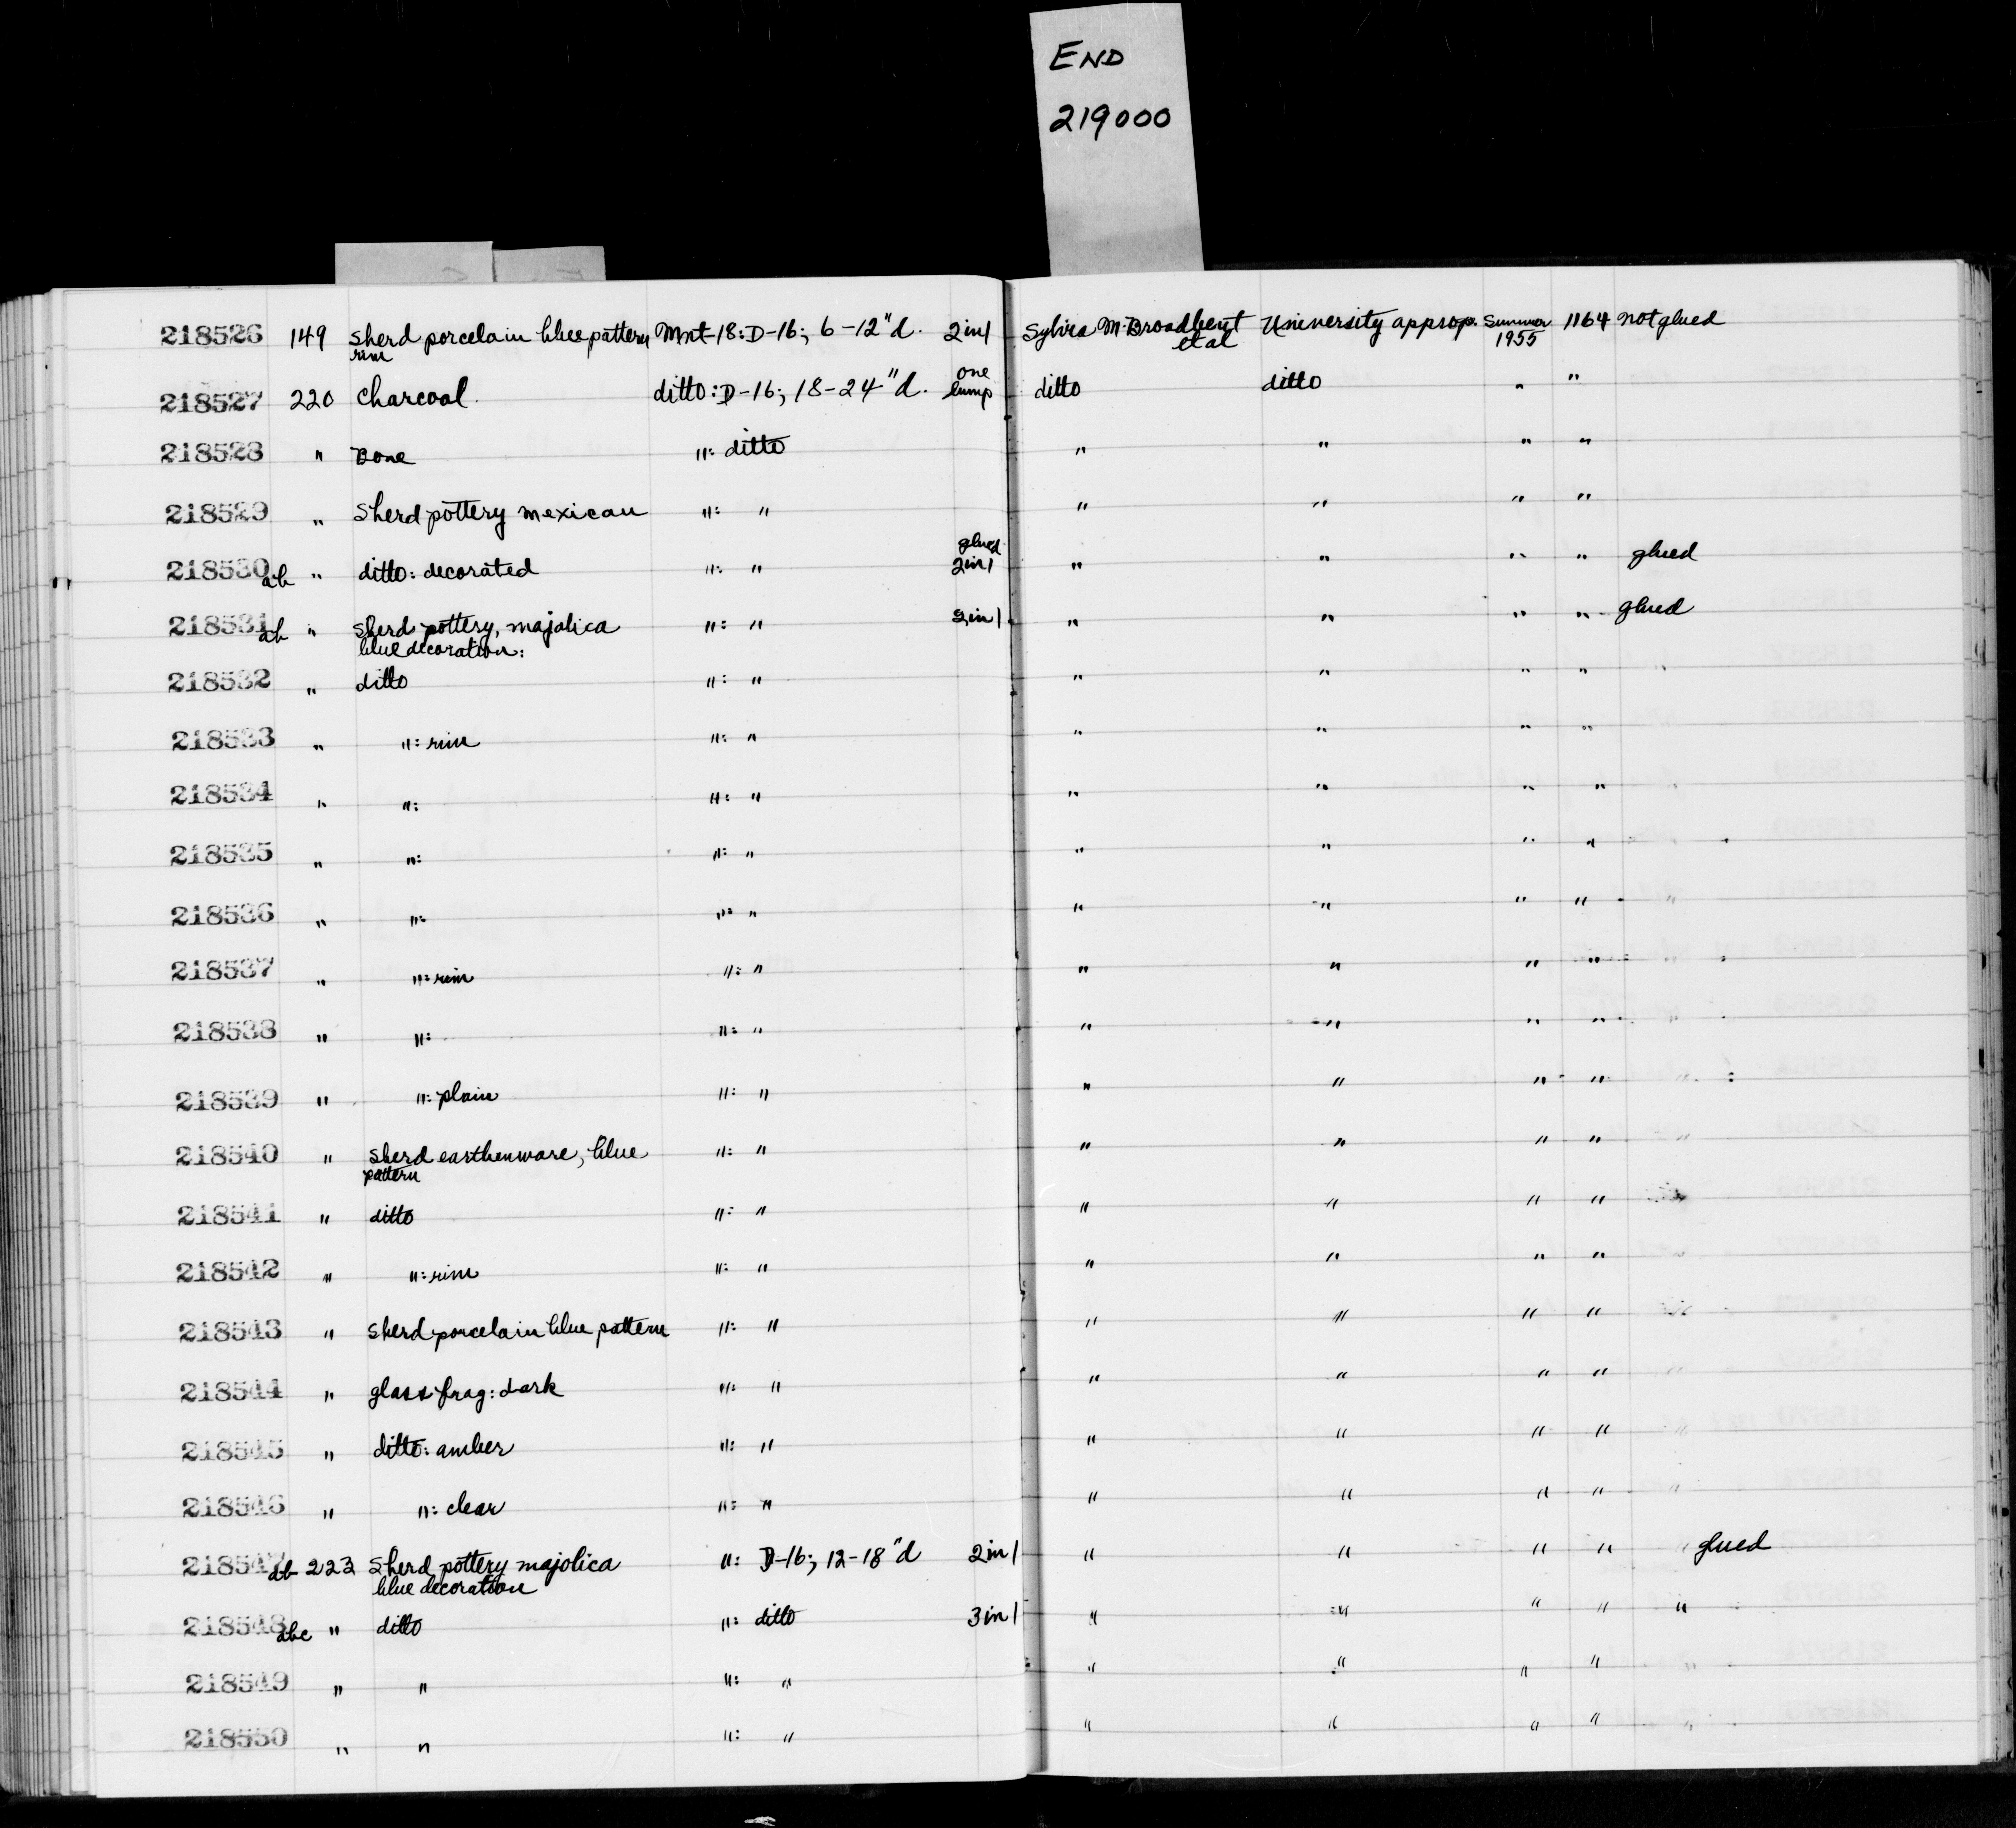 END
219000
218526 149 Sherd porcelain blue pattern Mnt-18: D-16; 6-12"d. 2 in 1 Sylvia M. Broadbent University approp. Summer 1164 not glued
rim et al 1955
218527 220 Charcoal. ditto: D-16; 18-24"d. one lump ditto ditto " "
218528 " Bone ": ditto " " " "
218529 " Sherd pottery mexican ": " " " " "
218530 ab " ditto: decorated ": " glued 2 in 1 " " " " glued
218531 ab " Sherd pottery, majolica ": " 2 in 1 " " " " glued
blue decoration:
218532 " ditto ": " " " " "
218533 " ": rim ": " " " " "
218534 " ": ": " " " " "
218535 " ": ": " " " " "
218536 " ": ": " " " " "
218537 " ": rim ": " " " " "
218538 " ": ": " " " " "
218539 " ": plain ": " " " " "
218540 " Sherd earthenware, blue ": " " " " "
pattern
218541 " ditto ": " " " " "
218542 " ": rim ": " " " " "
218543 " Sherd porcelain blue pattern ": " " " " "
218544 " glass frag: dark ": " " " " "
218545 " ditto: amber ": " " " " "
218546 " ": clear ": " " " " "
218547 ab 223 Sherd pottery majolica ": D-16; 12-18"d 2 in 1 " " " " glued
blue decoration
218548 abc " ditto ": ditto 3 in 1 " " " " "
218549 " " ": " " " " "
218550 " " ": " " " " "